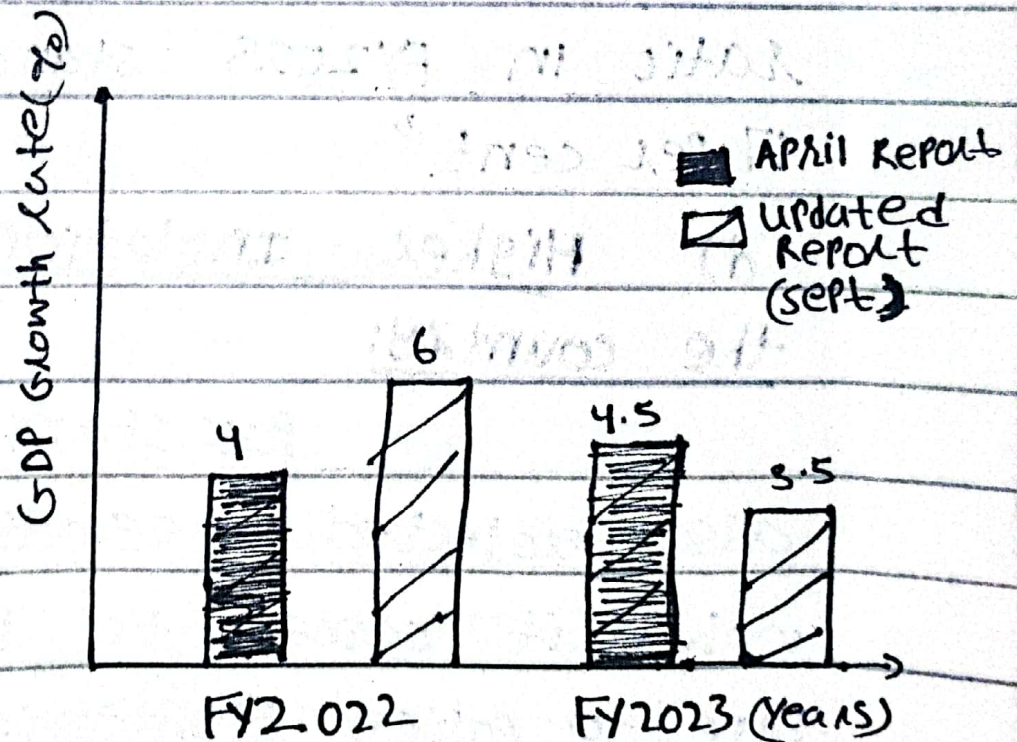 GDP Growth rate (%)
April Report
updated
Report
(Sept)
6
4
4.5
3.5
FY2022
FY2023 (Years)